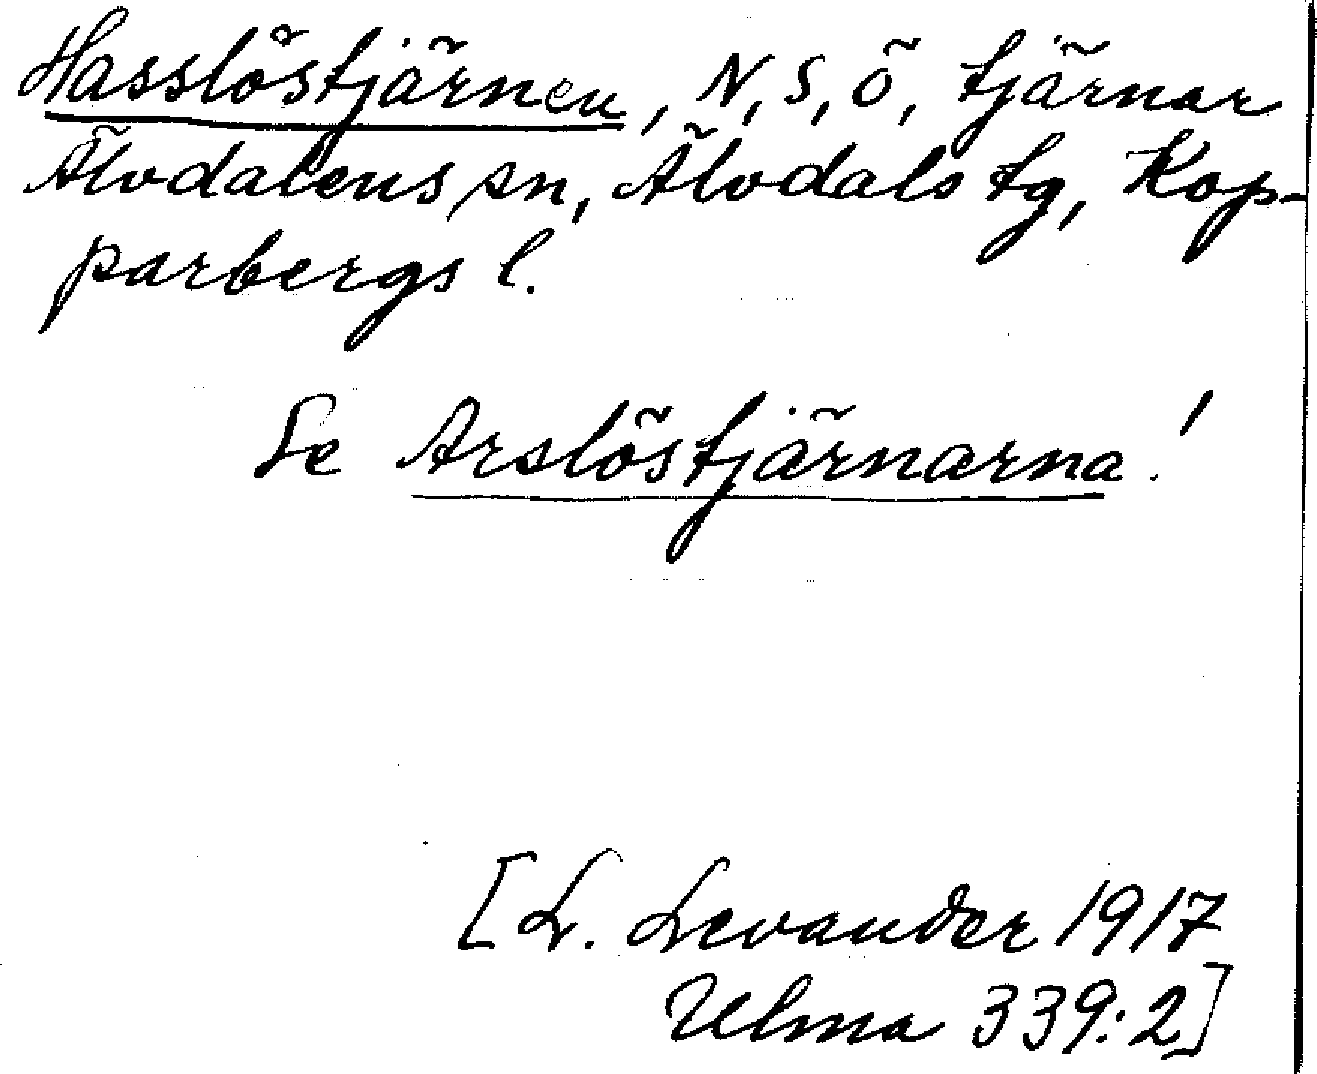 Hasslöstjärnen, N, S, Ö, tjärnar
Älvdalens sn, Älvdals tg, Kop-
parbergs l.
Se Arslöstjärnarna!
[L. Levander 1917
Ulma 339:2]